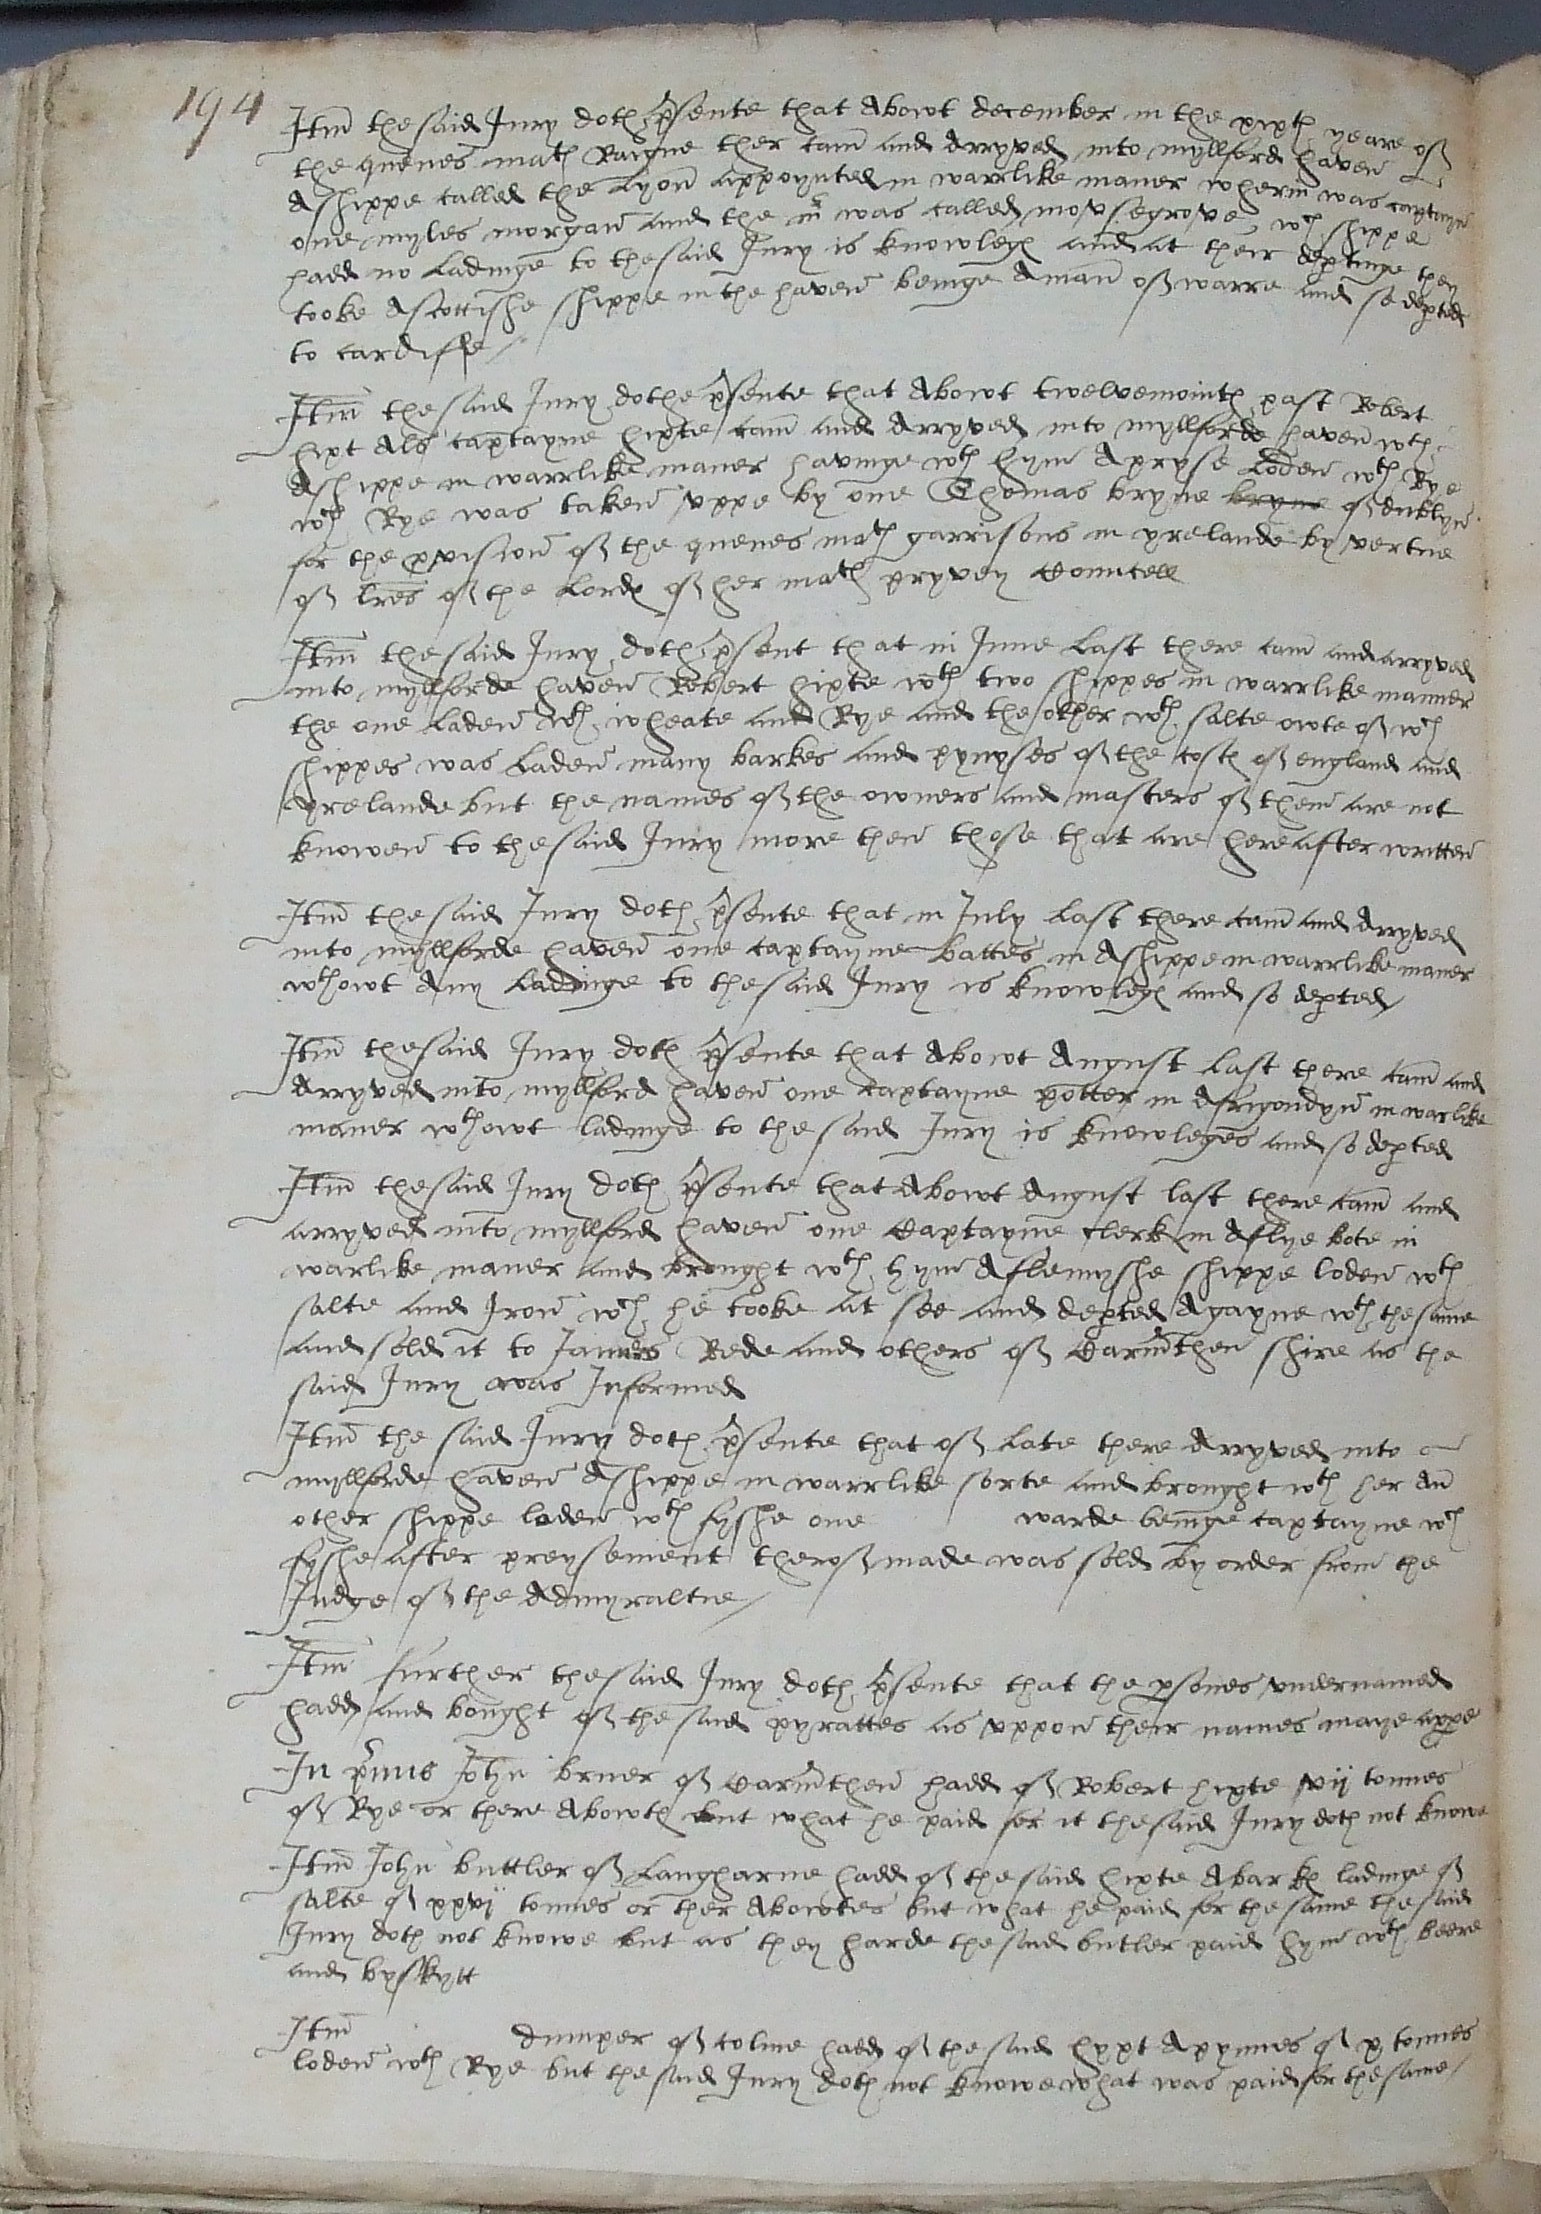 194
Itm the said Jury doth psente that Abowt december in the xixth yeare of
the quenes math Raigne ther cam and Arryved into myllford haven
A shippe called the Lyon appoynted in warrlike maner wherin was captayn
one myles morgan and the mr was called movsegrove, wch shippe
hadd no Ladinge to the said Jury is knowlege and at their deptinge they
tooke A scottishe shippe in the haven beinge A man of warre and so depted
to cardiffe
Itm the said Jury dothe psente that Abowt twelvemointh past Robert
hixt Als captayne hixte cam and Arryved into myllforde haven wth
A shippe in warrlike maner havinge wth hym A pryse Loden wth Rye
wch Rye was taken vppe by one Thomas bryne bryne of dublyn
for the pvision of the quenes math garrisons in yrelande by vertue
of lres of the Lordes of her math pryvey Councell
Itm the said Jury doth psent that in June Last there cam and arryved
into myllforde haven Robert hixte wth two shippes in warrlike manner
the one Laden wth wheate and Rye and the other wth salte owte of wch
shippes was Laden many barkes and pynyses of the costes of england and
yrelande but the names of the owners and masters of them are not
knowen to the said Jury more then those that are hereafter written
Itm the said Jury doth psente that in July Last there cam and Arryved
into myllforde haven one captayne battes in A shippe in warrlike maner
wthowt Any Ladinge to the said Jury is knowlege and so depted
Itm the said Jury doth psente that Abowt August Last there cam and
Arryved into myllford haven one captayne potter in A in warlike
maner wthowt ladinge to the said Jury is knowleges and so depted
Itm the said Jury doth psente that Abowt August last there cam and
arryved into myllford haven one Captayne Clerk in A flye bote in
warlike maner and brought wth hym A flemyshe shippe loden wth
salte and Iron wch he tooke at see and depted Agayne wth the same
and sold it to James Rede and others of Carmthen shire as the
said Jury was Informed
Itm the said Jury doth psente that of Late there Arryved into
myllforde haven A shippe in warrlike sorte and brought wth her An
other shippe laden wth fyshe one warde beinge captayne wch
fyshe after preysement therof made was sold by order from the
Judge of the Admyraltie
Itm further the said Jury doth psente that the psones vndernamed
hadd and bought of the said pyrattes as vppon their names maye appe
In pimis John bruer of Carmthen hadd of Robert hixte vij tonnes
of Rye or there Abowts but what he paid for it the said Jury doth not knowe
Itm John buttler of Langharne hadd of the said hixte A barkes ladinge of
salte of xxvj tonnes or ther Abowtes but what he paid for the same the said
Jury doth not knowe but as they harde the said butler paid hym wth beere
and byskytt
Itm dumper of colme hadd of the said hyxt A pynnes of x tonnes
loden wth Rye but the said Jury doth not knowe what was paid for the same